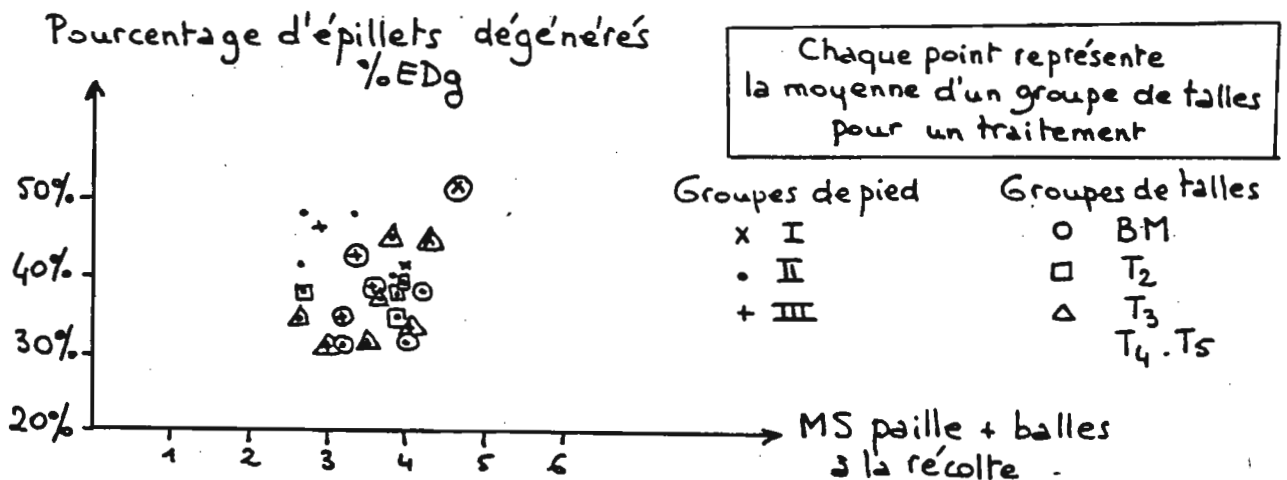 Pourcentage d'épillets dégénérés
% EDg
Chaque point représente
la moyenne d'un groupe de talles
pour un traitement
50%
40%
30%
20%
Groupes de pied
x I
• II
+ III
Groupes de talles
○ BM
□ T2
△ T3
T4 . T5
1 2 3 4 5 6
MS paille + balles
à la récolte .